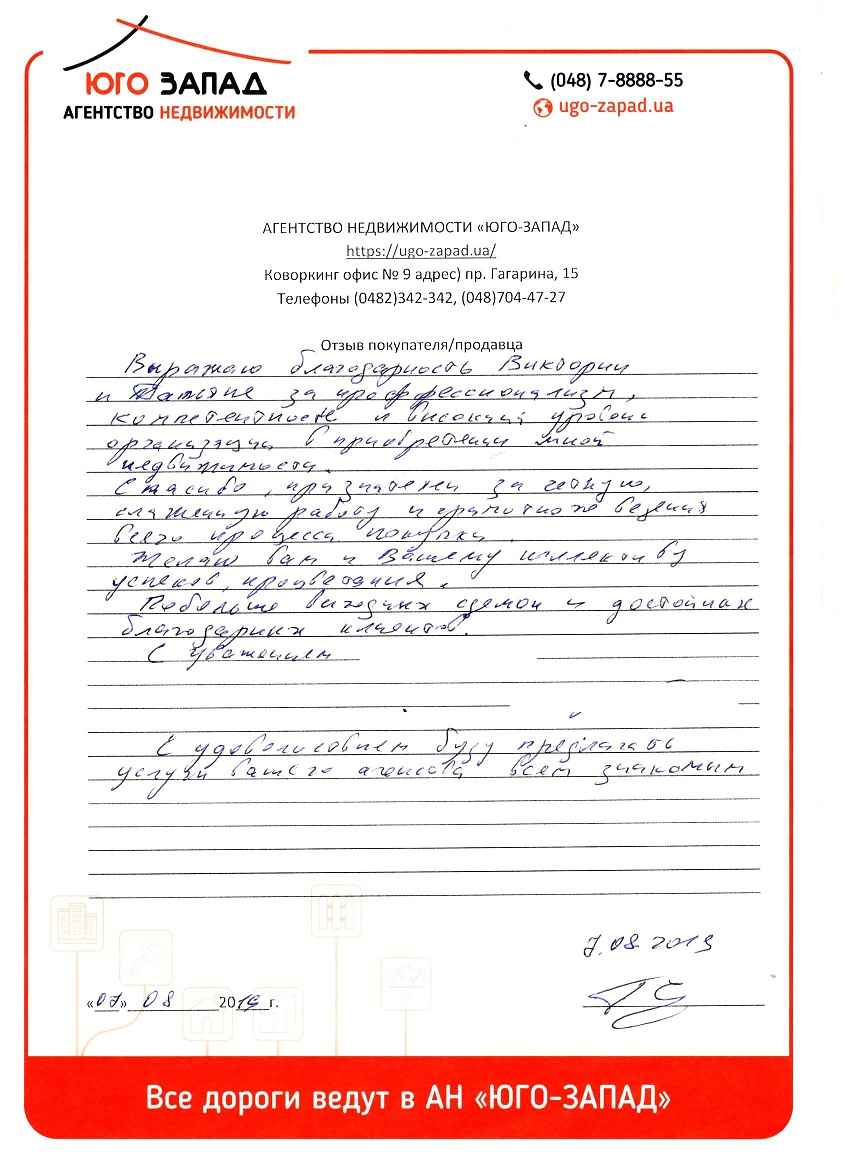 ЮГО ЗАПАД
АГЕНТСТВО НЕДВИЖИМОСТИ
(048) 7-8888-55
ugo-zapad.ua
АГЕНТСТВО НЕДВИЖИМОСТИ «ЮГО-ЗАПАД»
https://ugo-zapad.ua/
Коворкинг офис № 9 адрес) пр. Гагарина, 15
Телефоны (0482)342-342, (048)704-47-27
Отзыв покупателя/продавца
Выражаю благодарность Виктории
и Татьяне за профессионализм,
компетентность и высокий уровень
организации в приобретении мной
недвижимости.
Спасибо, признателен за четкую,
слаженную работу и грамотное ведения
всего процесса покупки.
Желаю вам и Вашему коллективу
успехов, процветания.
Побольше выгодных сделок и достойных
благодарных клиентов.
С уважением
С удовольствием буду предлагать
услуги вашего агенства всем знакомым
7.08.2019
«07» 08 2019г.
Все дороги ведут в АН «ЮГО-ЗАПАД»